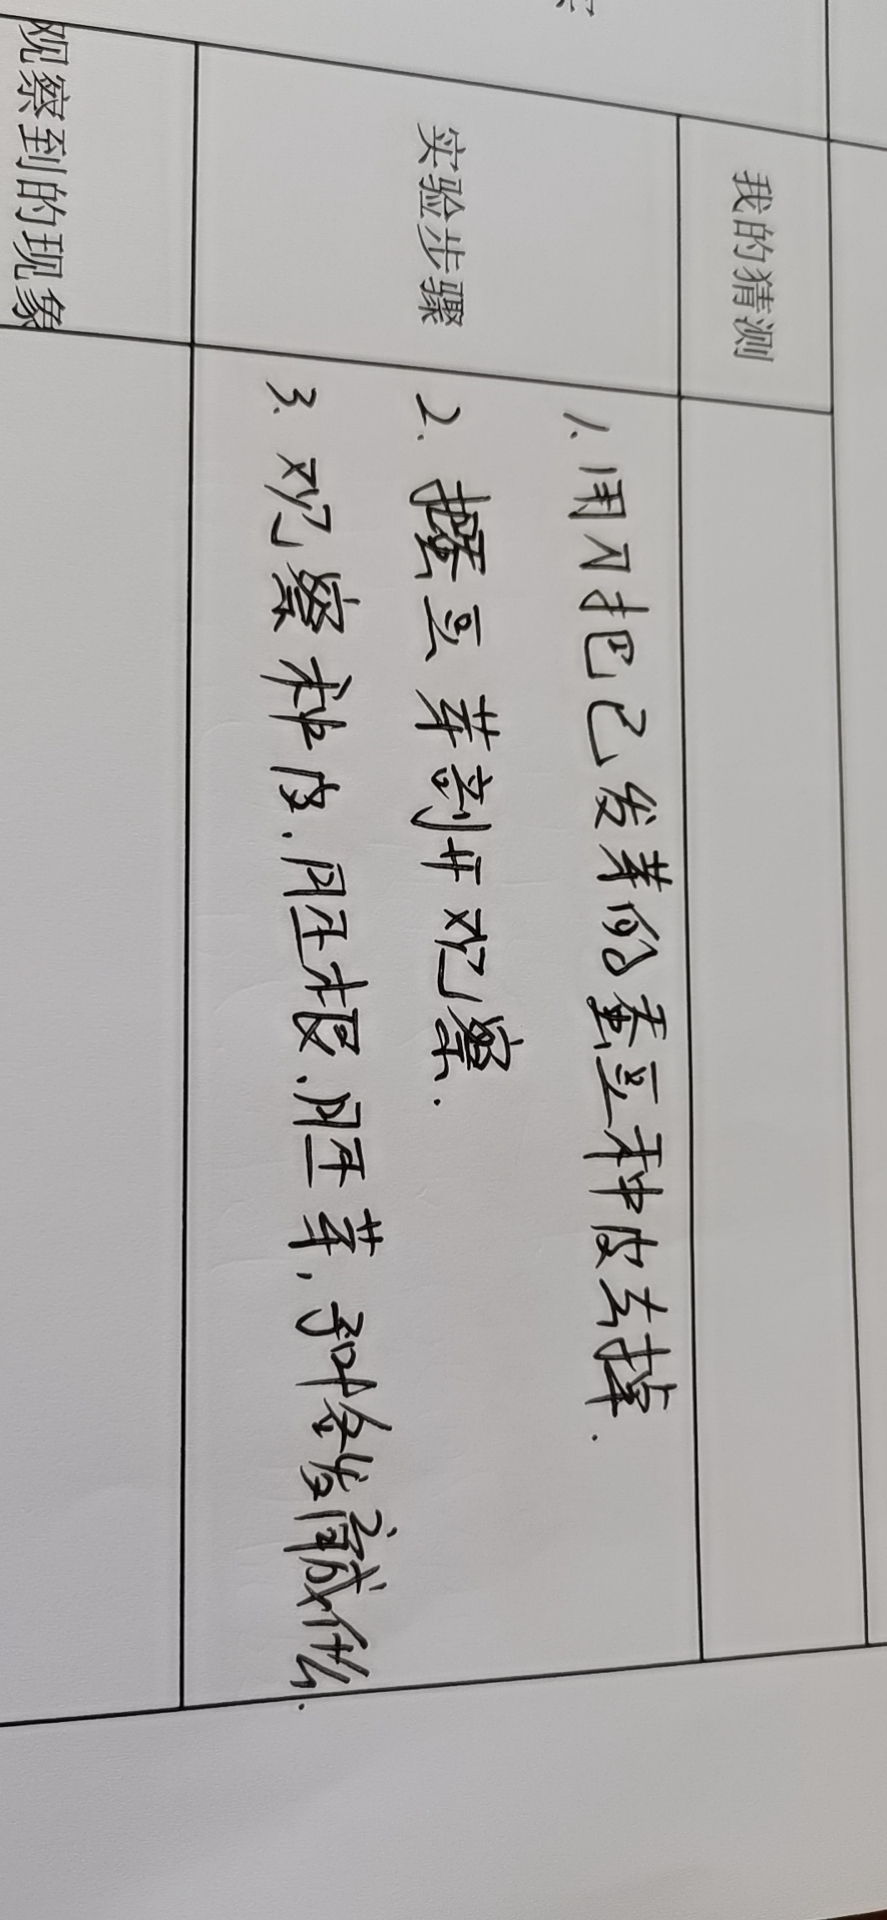 我的猜测
实验步骤
1. 用刀把已发芽的蚕豆种皮去掉.
2. 把蚕豆芽剖开观察.
3. 观察种皮.胚根.胚芽,和会发育成什么.
观察到的现象